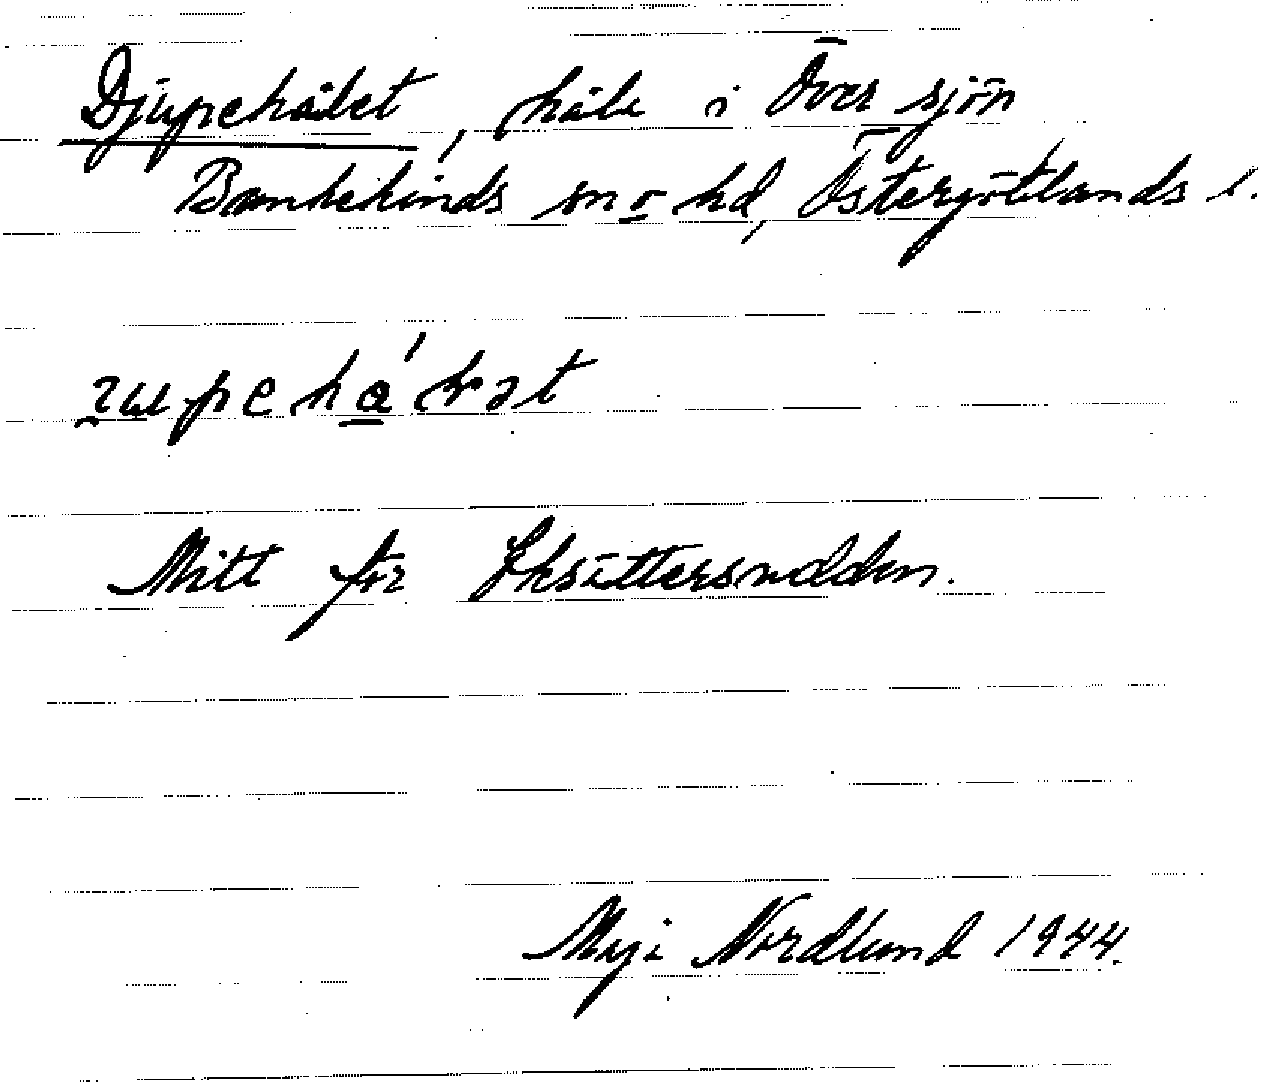 Djupehålet, håle i Över sjön
Bankekinds sn o hd, Östergötlands l.
Mitt för Eksättersudden.
Maji Nordlund 1944.